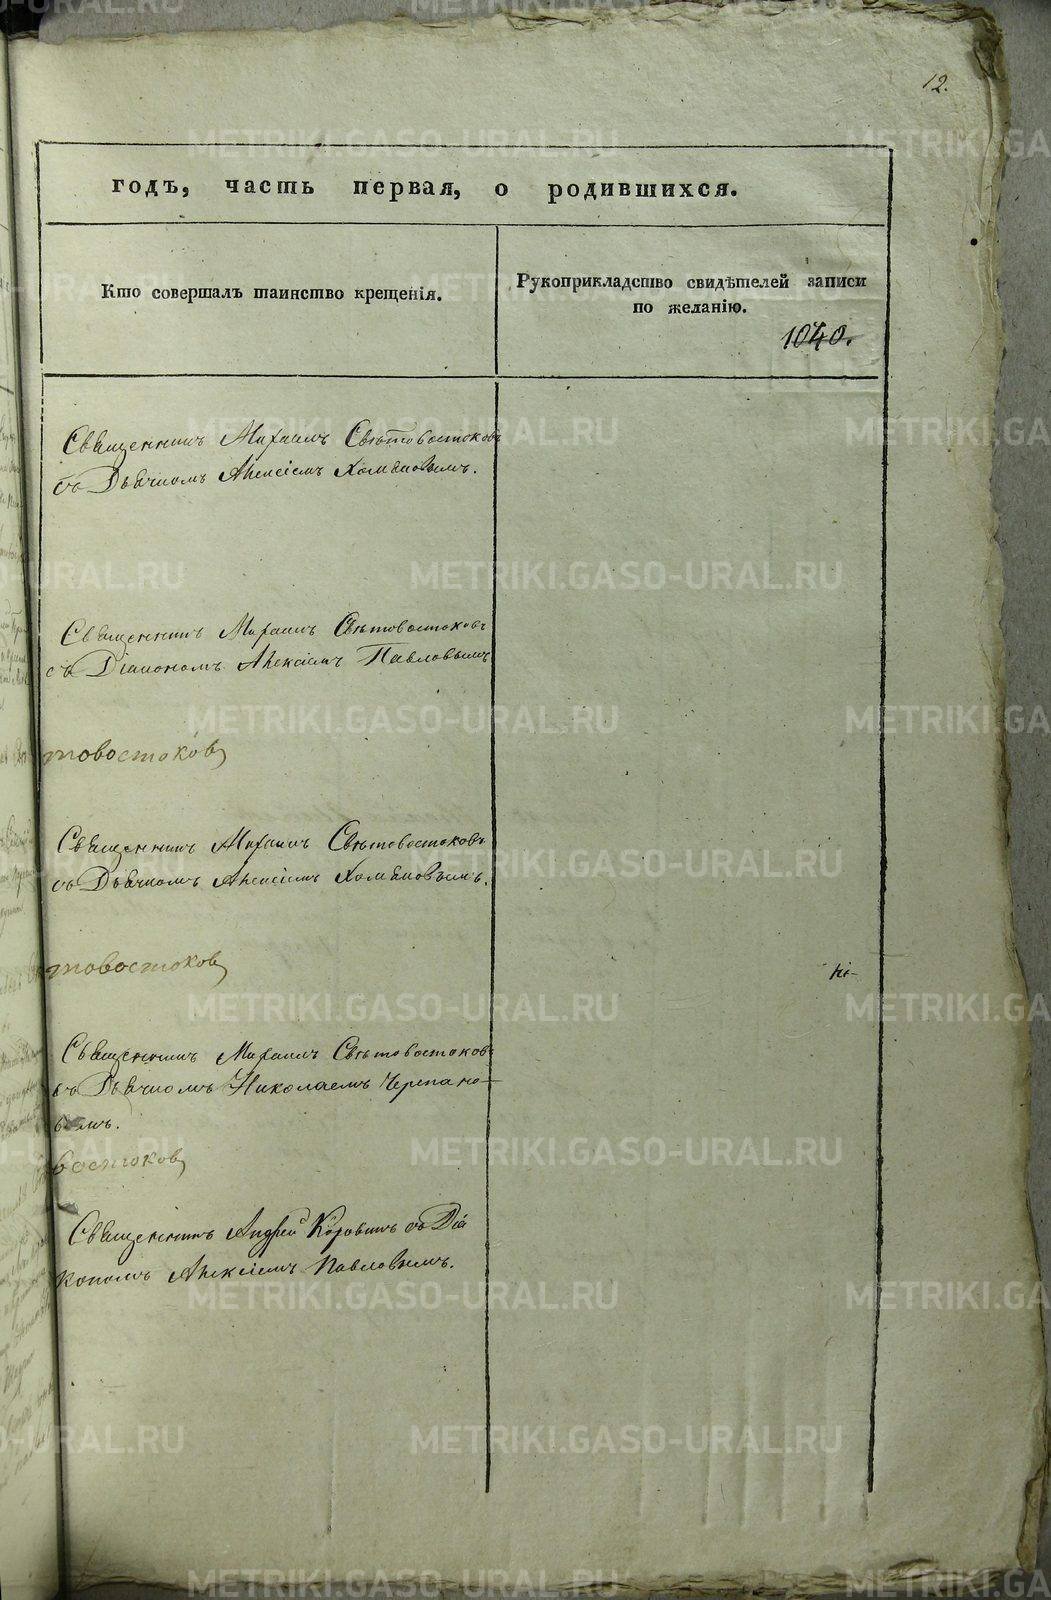 12.
годъ, часть первая, о родившихся.
Кто совершалъ таинство крещенія.
Рукоприкладство свидѣтелей записи
по желанію.
1040.
Священникъ Михаилъ Свѣтовостоковъ
съ Дьячкомъ Алексіемъ Хомяковымъ.
Священникъ Михаилъ Свѣтовостоковъ
съ Діакономъ Алексіемъ Павловымъ
товостоковъ
Священникъ Михаилъ Свѣтовостоковъ
съ Дьячкомъ Алексіемъ Хомяковымъ.
товостоковъ
Священникъ Михаилъ Свѣтовостоковъ
съ Дьячкомъ Николаемъ Черепано-
вымъ.
востоковъ
Священникъ Андрей Коровинъ съ Діа
кономъ Алексіемъ Павловымъ.
METRIKI.GASO-URAL.RU